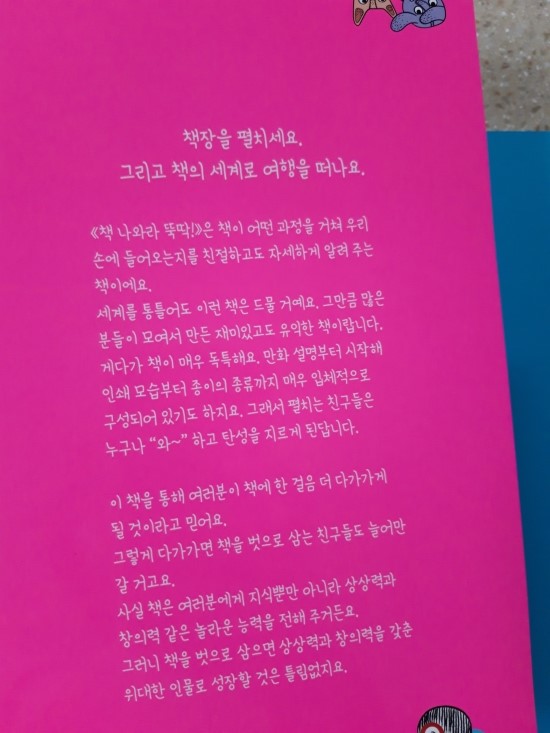 책장을 펼치세요.
그리고 책의 세계로 여행을 떠나요.
《책 나와라 뚝딱!》은 책이 어떤 과정을 거쳐 우리
손에 들어오는지를 친절하고도 자세하게 알려 주는
책이에요.
세계를 통틀어도 이런 책은 드물 거예요. 그만큼 많은
분들이 모여서 만든 재미있고도 유익한 책이랍니다.
게다가 책이 매우 독특해요. 만화 설명부터 시작해
인쇄 모습부터 종이의 종류까지 매우 입체적으로
구성되어 있기도 하지요. 그래서 펼치는 친구들은
누구나 “와~” 하고 탄성을 지르게 된답니다.
이 책을 통해 여러분이 책에 한 걸음 더 다가가게
될 것이라고 믿어요.
그렇게 다가가면 책을 벗으로 삼는 친구들도 늘어만
갈 거고요.
사실 책은 여러분에게 지식뿐만 아니라 상상력과
창의력 같은 놀라운 능력을 전해 주거든요.
그러니 책을 벗으로 삼으면 상상력과 창의력을 갖춘
위대한 인물로 성장할 것은 틀림없지요.